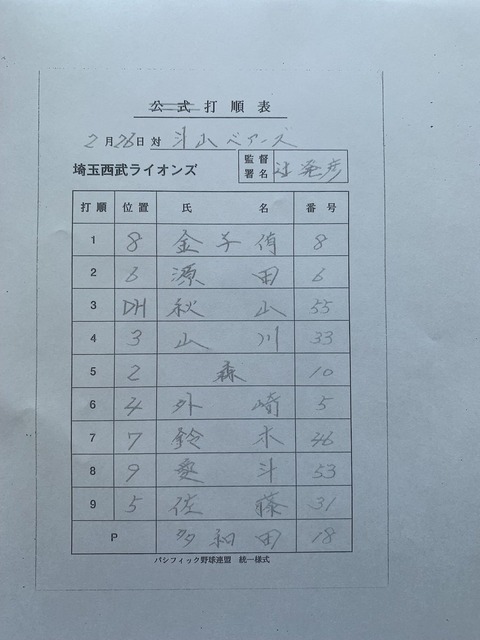 公式打順表
2月26日 対 斗山ベアーズ
埼玉西武ライオンズ 監督署名 辻発彦
打順 位置 氏 名 番号
1 8 金子侑 8
2 6 源田 6
3 DH 秋山 55
4 3 山川 33
5 2 森 10
6 4 外崎 5
7 7 鈴木 46
8 9 愛斗 53
9 5 佐藤 31
P 多和田 18
パシフィック野球連盟 統一様式